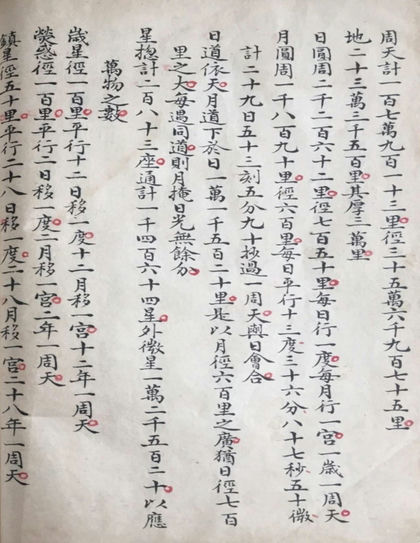 周天計一百七萬九百一十三里徑三十五萬六千九百七十五里
地二十三萬三千五百里其厚三萬里
日圓周二千二百六十二里徑七百五十里每日行一度每月行一宮一歲一周天
月圓周一千八百九十里徑六百里每日平行十三度三十六分八十七秒五十微
計二十九日五十三刻五分九十抄過一周天與日會合
日道依天月道下於日一萬一千五百二十里是以月徑六百里之廣猶日徑七百
里之大每遇同道則月掩日光無餘分
星揔計二百八十三座通計一千四百六十四星外微星一萬二千五百二十以應
萬物之數
歲星徑一百里平行十二日移一度十二月移一宮十二年一周天
熒惑徑一百里平行二日移一度二月移一宮二年一周天
鎮星徑五十里平行二十八日移一度二十八月移一宮二十八年一周天